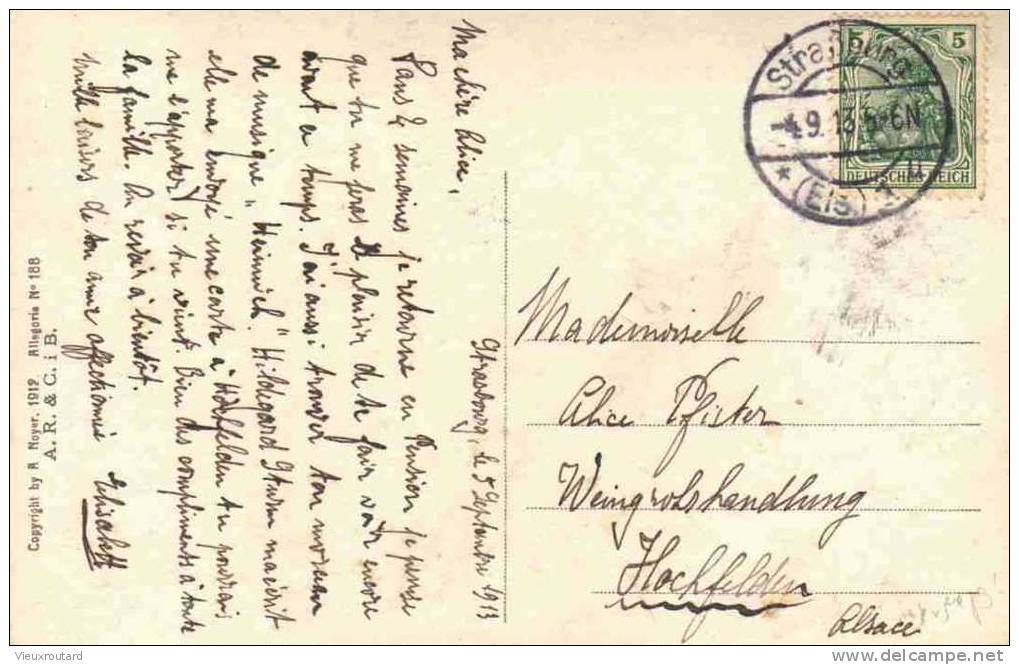 Strasbourg, le 5 Septembre 1913
Ma chère Alice,
Dans 2 semaines je retourne en Pension je pense
que tu me feras le plaisir de te fair voir encore
avant ce temps. J'ai aussi trouver ton morceau
de musique „Heinrich." Hildegard Sturm m'a écrit
elle m'a envoié une carte à Hochfelden tu pourrais
me l'apporter si tu vient. Bien des compliments à toute
la famille. Au revoir à bientôt.
Mille baisers de ton amie affectionnée
Elisabeth
Copyright by R Noyer. 1912. Allegorie No 188
A. R. & C. i B.
5 5
DEUTSCHES REICH
Straßburg
-4.9.13.5-6N
* (Els.) 1 u
Mademoiselle
Alice Pfister
Weingrosshandlung
Hochfelden
Alsace
© Vieuxroutard
www.delcampe.net